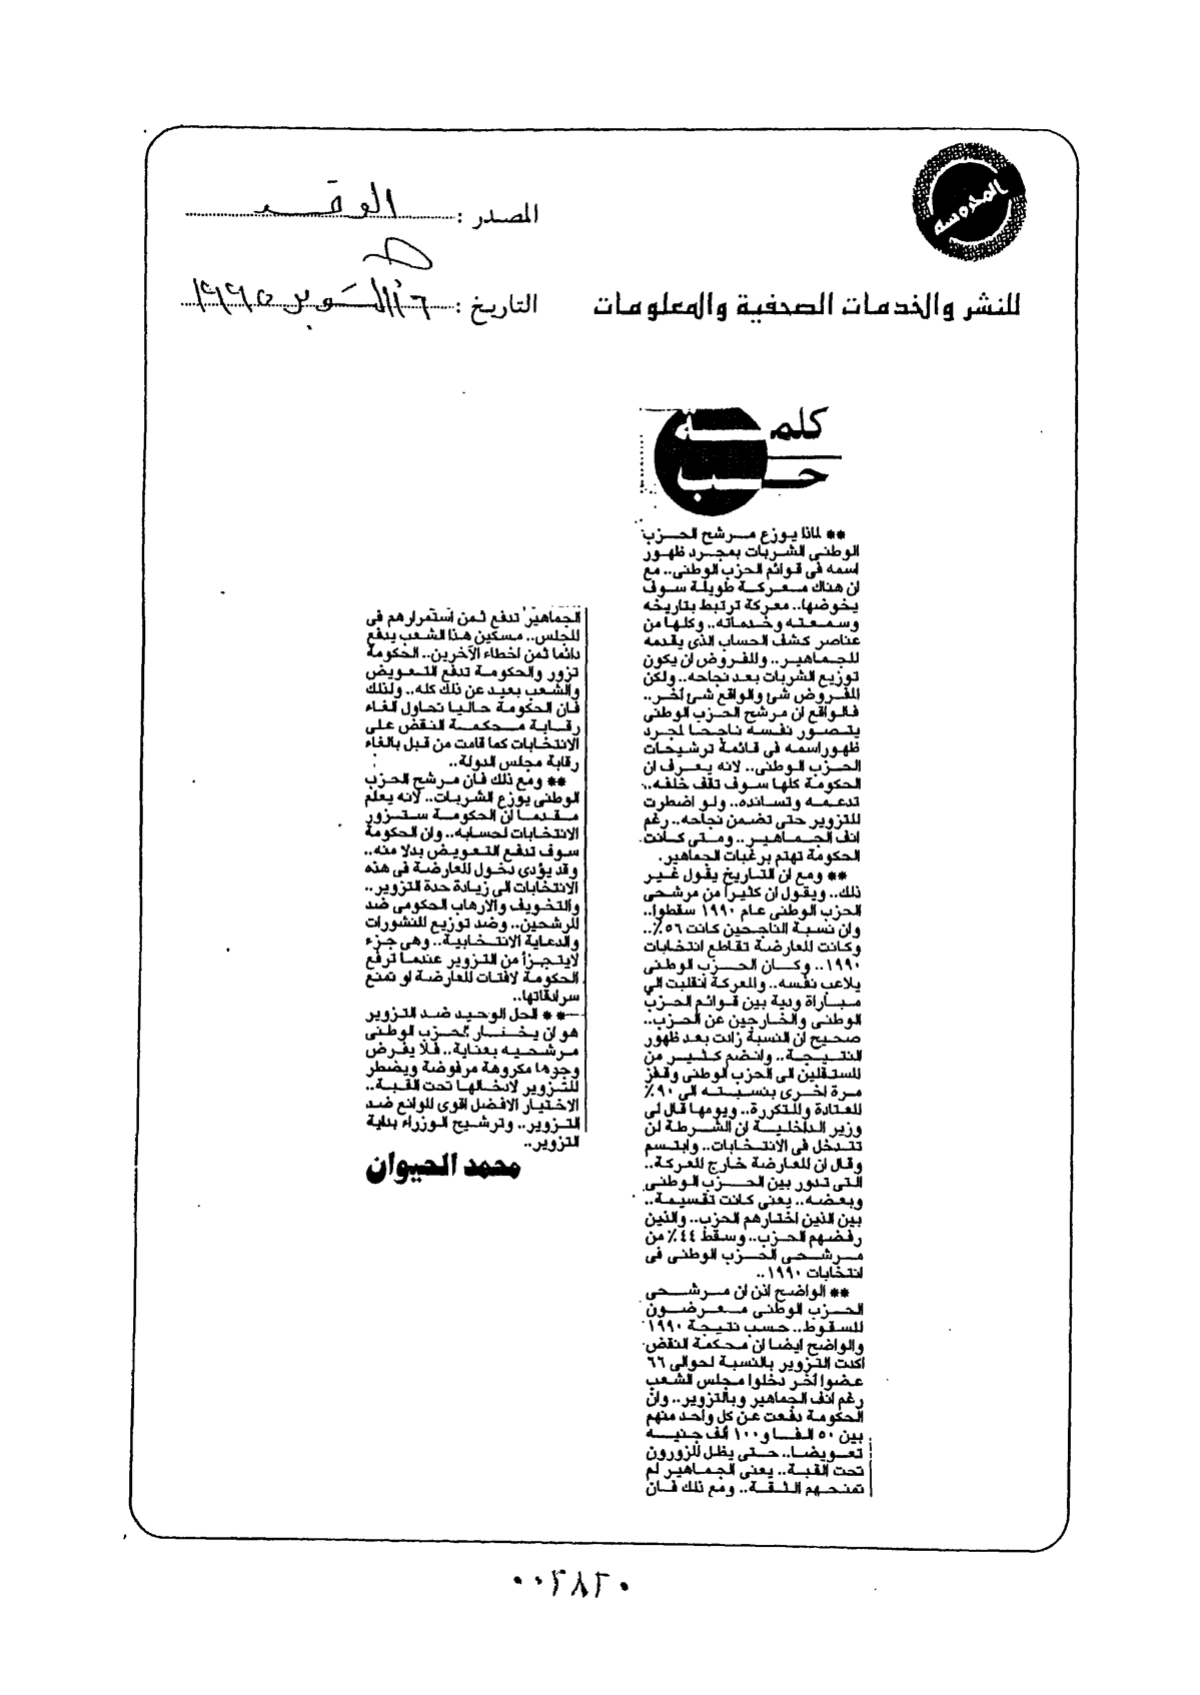 المحروسة
المصدر : الوفد
للنشر والخدمات الصحفية والمعلومات
التاريخ : ١٦ أكتوبر ١٩٩٥
كلمة
حب
** لماذا يوزع مرشح الحزب
الوطنى الشربات بمجرد ظهور
اسمه فى قوائم الحزب الوطنى.. مع
ان هناك معركة طويلة سوف
يخوضها.. معركة ترتبط بتاريخه
وسمعته وخدماته.. وكلها من
عناصر كشف الحساب الذى يقدمه
للجماهير.. والمفروض ان يكون
توزيع الشربات بعد نجاحه.. ولكن
المفروض شئ والواقع شئ آخر..
فالواقع ان مرشح الحزب الوطنى
يتصور نفسه ناجحا لمجرد
ظهور اسمه فى قائمة ترشيحات
الحزب الوطنى.. لانه يعرف ان
الحكومة كلها سوف تقف خلفه..
تدعمه وتسانده.. ولو اضطرت
للتزوير حتى تضمن نجاحه.. رغم
انف الجماهير.. ومتى كانت
الحكومة تهتم برغبات الجماهير.
** ومع ان التاريخ يقول غير
ذلك.. ويقول ان كثيرا من مرشحى
الحزب الوطنى عام ١٩٩٠ سقطوا..
وان نسبة الناجحين كانت ٥٦٪..
وكانت المعارضة تقاطع انتخابات
١٩٩٠.. وكان الحزب الوطنى
يلاعب نفسه.. والمعركة انقلبت الى
مباراة ودية بين قوائم الحزب
الوطنى والخارجين عن الحزب..
صحيح ان النسبة زادت بعد ظهور
النتيجة.. وانضم كثير من
المستقلين الى الحزب الوطنى وقفز
مرة اخرى بنسبته الى ٩٠٪
المعتادة والمتكررة.. ويومها قال لى
وزير الداخلية ان الشرطة لن
تتدخل فى الانتخابات.. وابتسم
وقال ان المعارضة خارج المعركة..
التى تدور بين الحزب الوطنى
وبعضه.. يعنى كانت تقسيمة..
بين الذين اختارهم الحزب.. والذين
رفضهم الحزب.. وسقط ٤٤٪ من
مرشحى الحزب الوطنى فى
انتخابات ١٩٩٠..
** الواضح اذن ان مرشحى
الحزب الوطنى معرضون
للسقوط.. حسب نتيجة ١٩٩٠
والواضح ايضا ان محكمة النقض
اكدت التزوير بالنسبة لحوالى ٦٦
عضوا آخر دخلوا مجلس الشعب
رغم انف الجماهير وبالتزوير.. وان
الحكومة دفعت عن كل واحد منهم
بين ٥٠ الفا و١٠٠ الف جنيه
تعويضا.. حتى يظل المزورون
تحت القبة.. يعنى الجماهير لم
تمنحهم الثقة.. ومع ذلك فان
الجماهير تدفع ثمن استمرارهم فى
المجلس.. مسكين هذا الشعب يدفع
دائما ثمن اخطاء الآخرين.. الحكومة
تزور والحكومة تدفع التعويض
والشعب بعيد عن ذلك كله.. ولذلك
فان الحكومة حاليا تحاول الغاء
رقابة محكمة النقض على
الانتخابات كما قامت من قبل بالغاء
رقابة مجلس الدولة..
** ومع ذلك فان مرشح الحزب
الوطنى يوزع الشربات.. لانه يعلم
مقدما ان الحكومة ستزور
الانتخابات لحسابه.. وان الحكومة
سوف تدفع التعويض بدلا منه..
وقد يؤدى دخول المعارضة فى هذه
الانتخابات الى زيادة حدة التزوير..
والتخويف والارهاب الحكومى ضد
المرشحين.. وضد توزيع المنشورات
والدعاية الانتخابية.. وهى جزء
لايتجزأ من التزوير عندما ترفع
الحكومة لافتات المعارضة او تمنع
سرادقاتها..
** الحل الوحيد ضد التزوير
هو ان يختار الحزب الوطنى
مرشحيه بعناية.. فلا يفرض
وجوها مكروهة مرفوضة ويضطر
للتزوير لادخالها تحت القبة..
الاختيار الافضل اقوى الموانع ضد
التزوير.. وترشيح الوزراء بداية
التزوير..
محمد الحيوان
٠٠٣٨٢٠